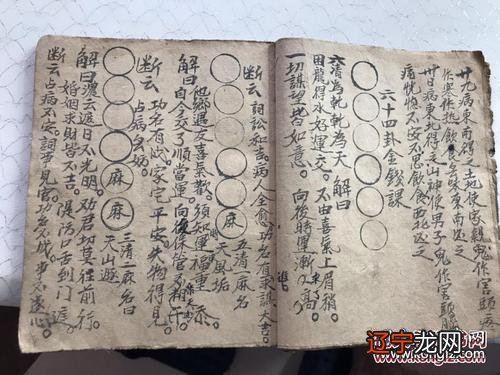 廿九病東南得之土地使家親鬼作害頭疼
作寒作热飲食去味東南送之
卅日病東北得之山神使男子鬼作害頭腦
痛恍惚不安不思飲食西北送之
六十四卦金錢課
六清為乾乾為天 解曰
困龍得水好運交。不由喜氣上眉稍。
一切謀望皆如意。向後時運漸々高
断云 詞訟和吉。病人全愈 功名有
五清一麻名
天風垢
他鄉遇友喜氣歡。須知運福重 添
解曰自今交了順當運 向後保管
断云 功名有成 家宅平安 失物得見
占病
三清二麻名曰
天山遯
解曰濃云遮日不光明。功君切莫往前行
婚姻求財皆不吉。湜防口舌到門
断云占病不安。詞訟見官
辽宁龙网
www.kongfz.com